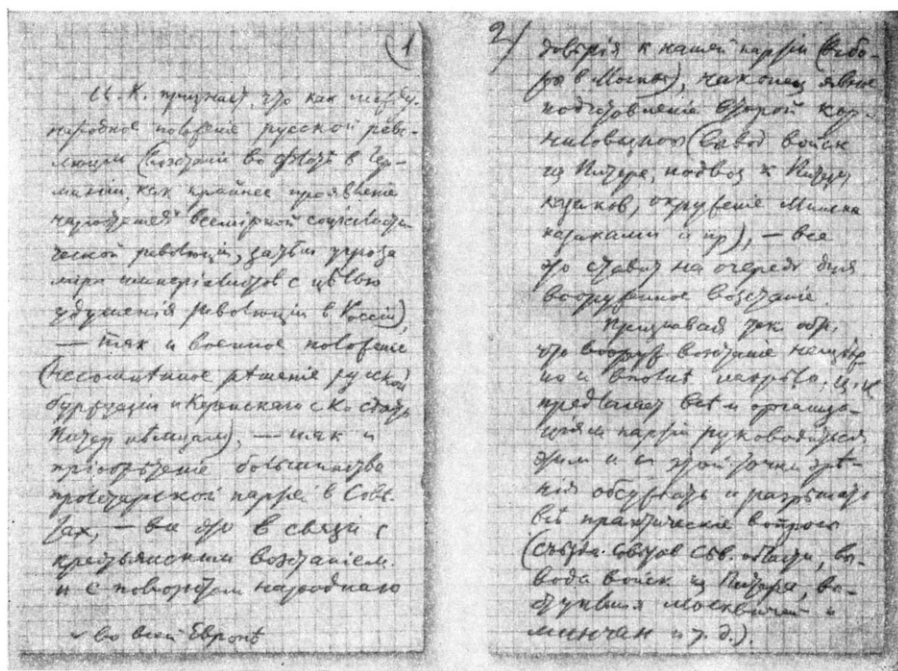 (1
Ц. К. признает, что как между-
народное положение русской рево-
люции (возстание во флотѣ в Гер-
маніи, как крайнее проявленіе
наростанія всемірной соціалисти-
ческой революціи, затѣм угроза
мира имперіалистов с цѣлью
удушенія революціи в Россіи),
— так и военное положеніе
(несомнѣнное рѣшеніе русской
буржуазіи и Керенскаго с Ко сдать
Питер нѣмцам), — так и
пріобрѣтеніе большинства
пролетарской партіей в Совѣ-
тах, — все это в связи с
крестьянским возстаніем
и с поворотом народнаго
во всей Европѣ
2)
довѣрія к нашей партіи (выбо-
ры в Москвѣ), наконец явное
подготовленіе второй кор-
ниловщины (вывод войск
из Питера, подвоз к Питеру
казаков, окруженіе Минска
казаками и пр), — все
это ставит на очередь дня
вооруженное возстаніе.
Признавая так. обр.
что вооруж. возстаніе неизбѣж-
но и вполнѣ назрѣло, Ц. К.
предлагает всѣм организа-
ціям партіи руководиться
этим и с этой точки зрѣ-
нія обсуждать и разрѣшать
всѣ практическіе вопросы
(съѣзда Совѣтов Сѣв. области, вы-
вода войск из Питера, вы-
ступленія москвичей и
минчан и т. д.).